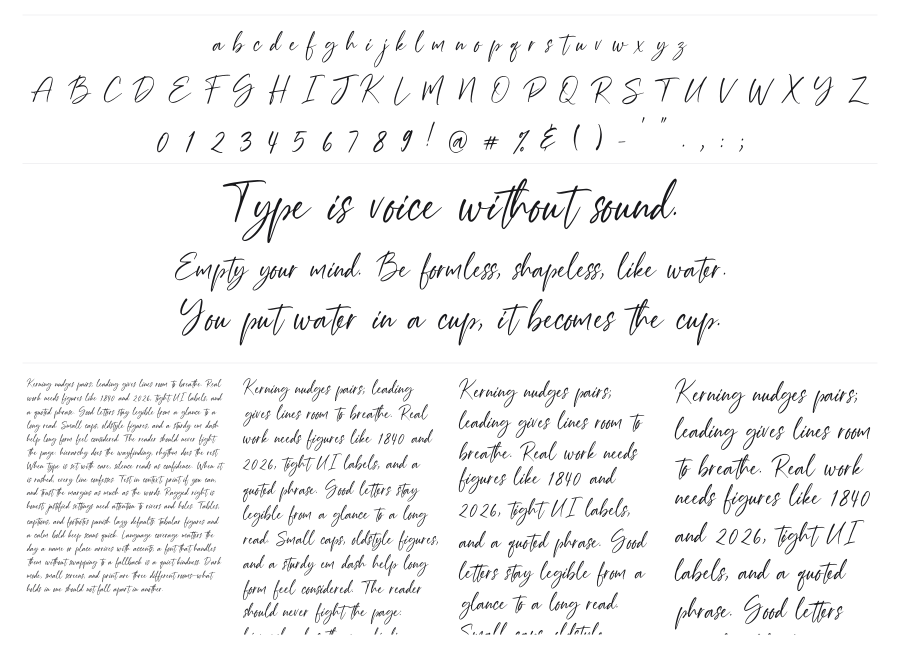 a b c d e f g h i j k l m n o p q r s t u v w x y z
A B C D E F G H I J K L M N O P Q R S T U V W X Y Z
0 1 2 3 4 5 6 7 8 9 ! @ # % & ( ) - ' " . , : ;
Type is voice without sound.
Empty your mind. Be formless, shapeless, like water.
You put water in a cup, it becomes the cup.
Kerning nudges pairs; leading gives lines room to breathe. Real
work needs figures like 1840 and 2026, tight UI labels, and
a quoted phrase. Good letters stay legible from a glance to a
long read. Small caps, oldstyle figures, and a sturdy em dash
help long form feel considered. The reader should never fight
the page: hierarchy does the wayfinding, rhythm does the rest.
When type is set with care, silence reads as confidence. When it
is rushed, every line confesses. Test in context, print if you can,
and trust the margins as much as the words. Ragged right is
honest; justified settings need attention to rivers and holes. Tables,
captions, and footnotes punish lazy defaults; tabular figures and
a calm bold keep scans quick. Language coverage matters the
day a name or place arrives with accents; a font that handles
them without swapping to a fallback is a quiet kindness. Dark
mode, small screens, and print are three different rooms—what
holds in one should not fall apart in another.
Kerning nudges pairs; leading
gives lines room to breathe. Real
work needs figures like 1840 and
2026, tight UI labels, and a
quoted phrase. Good letters stay
legible from a glance to a long
read. Small caps, oldstyle figures,
and a sturdy em dash help long
form feel considered. The reader
should never fight the page:
Kerning nudges pairs;
leading gives lines room to
breathe. Real work needs
figures like 1840 and
2026, tight UI labels,
and a quoted phrase. Good
letters stay legible from a
glance to a long read.
Small caps, oldstyle
Kerning nudges pairs;
leading gives lines room
to breathe. Real work
needs figures like 1840
and 2026, tight UI
labels, and a quoted
phrase. Good letters